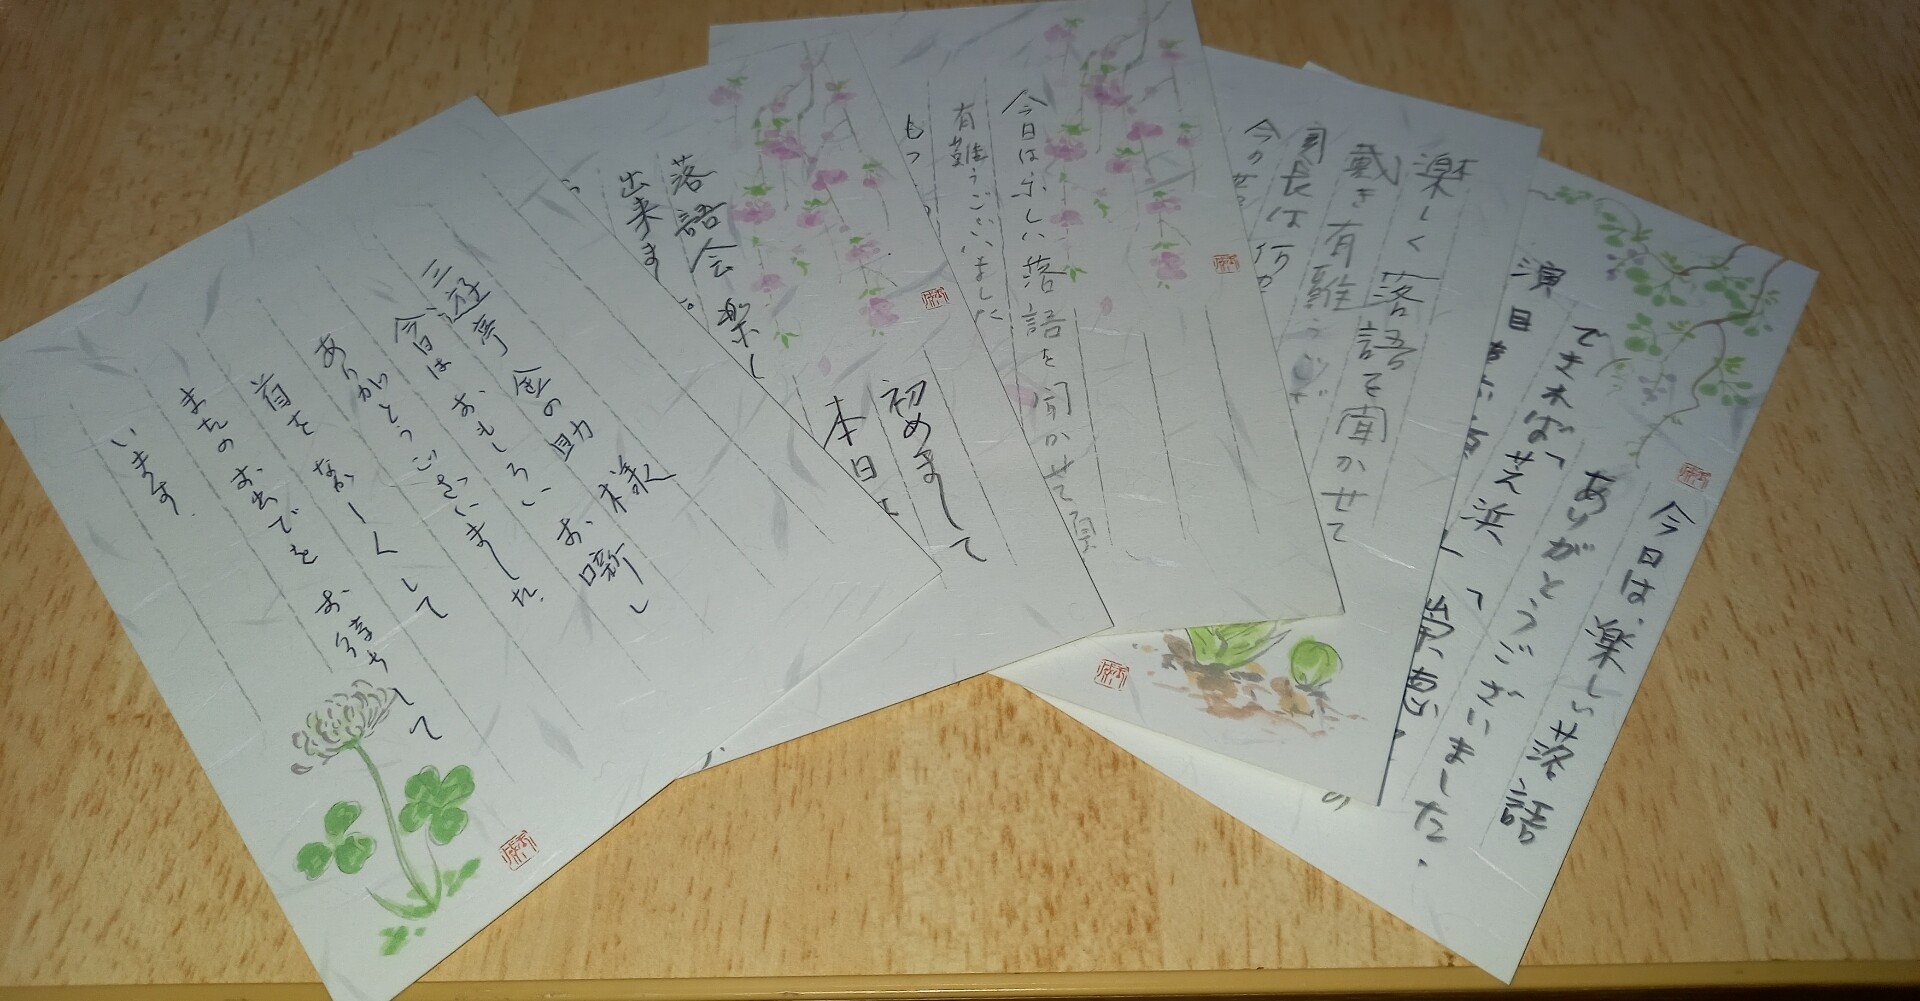 三遊亭 金の助 様
今日は おもしろい お噺し
ありがとうございました.
首を なが〜くして
またの お出でを お待ちして
います.
初めまして
本日は
落語会 楽し
出来ま
今日は楽しい落語を聞かせて頂
有難うございました
もっ
楽しく落語を聞かせて
戴き有難うござ
今の
今日は.楽しい落語
ありがとうございました.
できれば「芝浜」「
演目